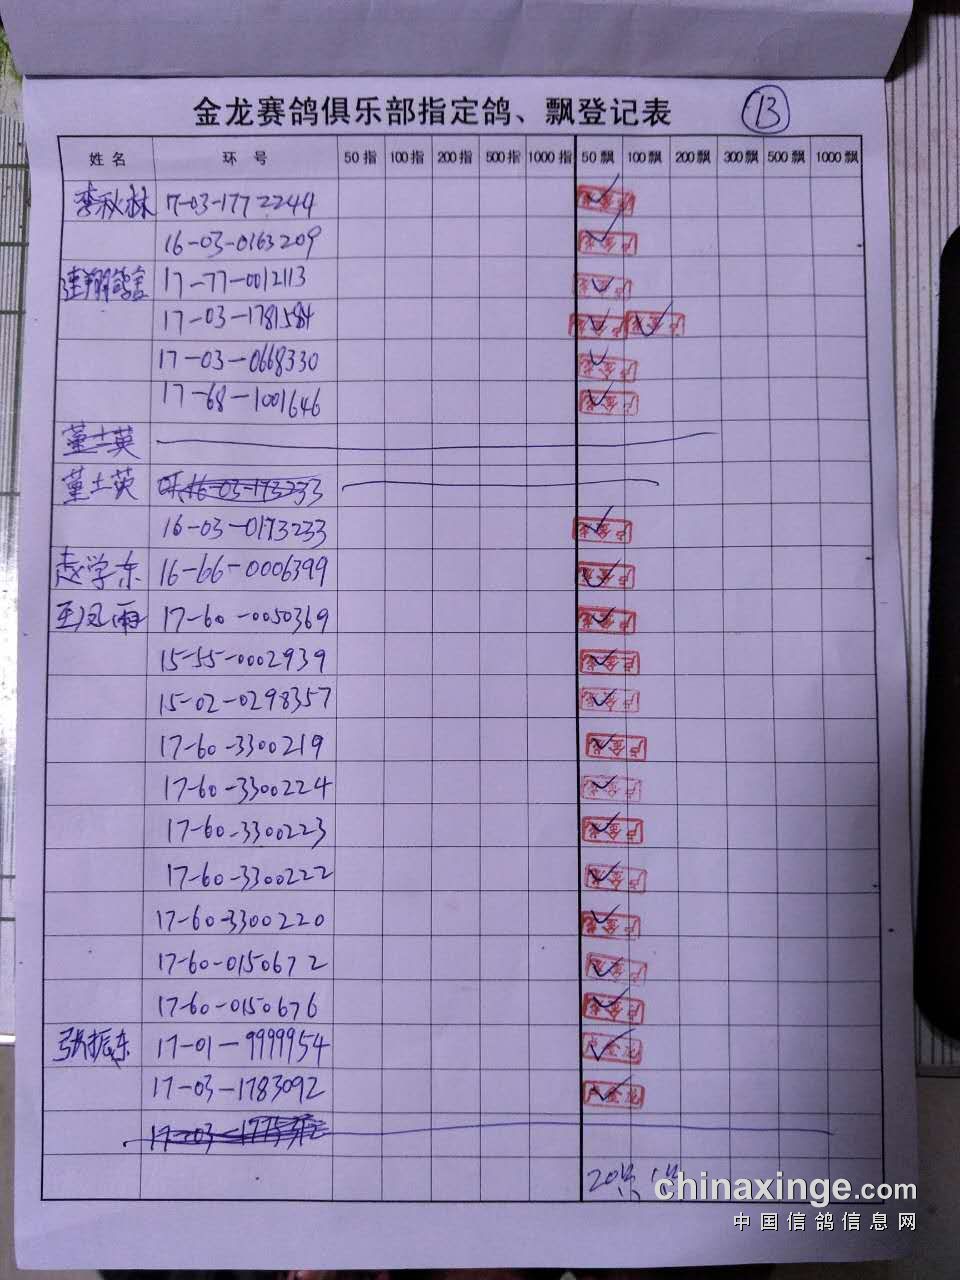 金龙赛鸽俱乐部指定鸽、飘登记表 13
姓名 环号 50指 100指 200指 500指 1000指 50飘 100飘 200飘 300飘 500飘 1000飘
李秋林 17-03-1772244 ✓
16-03-0163209 ✓
17-77-0012113 ✓
17-03-1781584 ✓ ✓
17-03-0668330 ✓
17-68-1001646 ✓
董士英
董士英
16-03-0173233 ✓
赵学东 16-66-0006399 ✓
王凤雨 17-60-0050369 ✓
15-55-0002939 ✓
15-02-0298357 ✓
17-60-3300219 ✓
17-60-3300224 ✓
17-60-3300223 ✓
17-60-3300222 ✓
17-60-3300220 ✓
17-60-0150672 ✓
17-60-0150676 ✓
张振东 17-01-9999954 ✓
17-03-1783092 ✓
20
chinaxinge.com
中国信鸽信息网